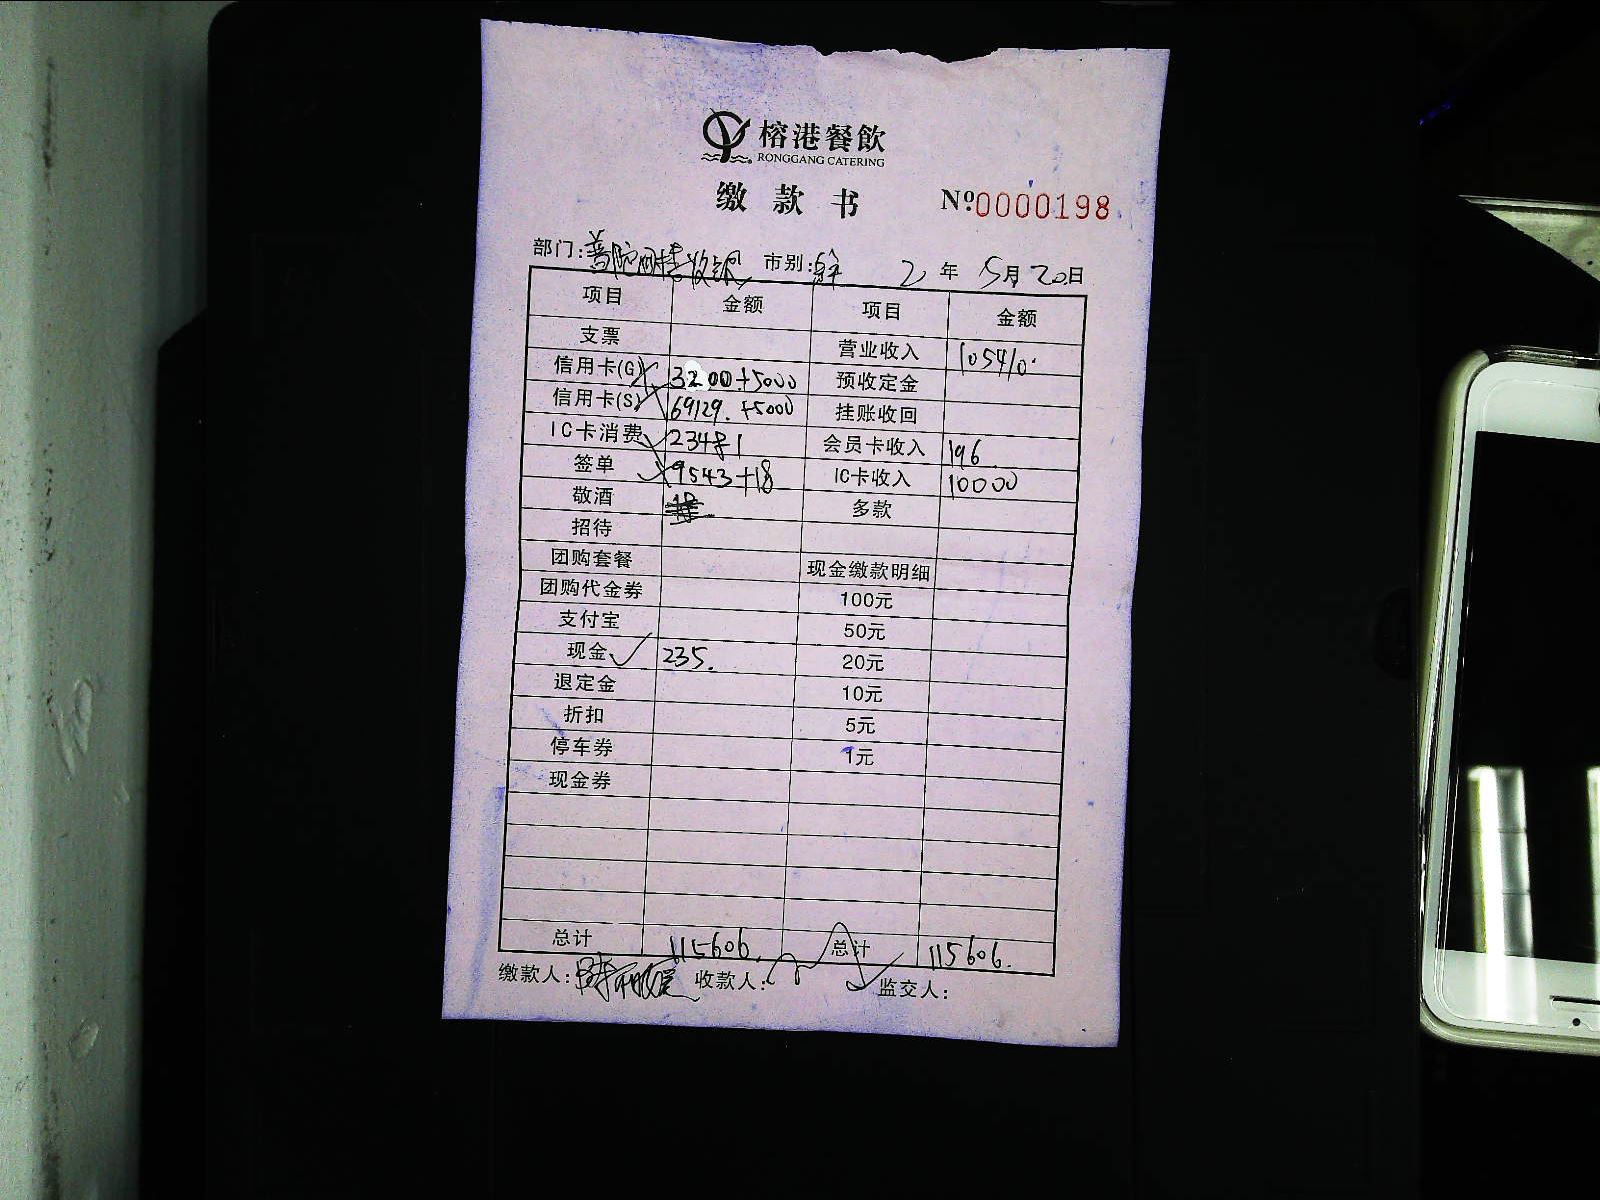 榕港餐飲
RONGGANG CATERING
缴款书 Nº0000198
部门: 收银 市别: 年 5月20日
项目 金额 项目 金额
支票 营业收入 105410.
信用卡(G) 3200+5000 预收定金
信用卡(S) 69129.+5000 挂账收回
IC卡消费 23481 会员卡收入 196
签单 9543+18 IC卡收入 10000
敬酒 多款
招待
团购套餐 现金缴款明细
团购代金券 100元
支付宝 50元
现金 235. 20元
退定金 10元
折扣 5元
停车券 1元
现金券
总计 115606. 总计 115606.
缴款人: 收款人: 监交人: